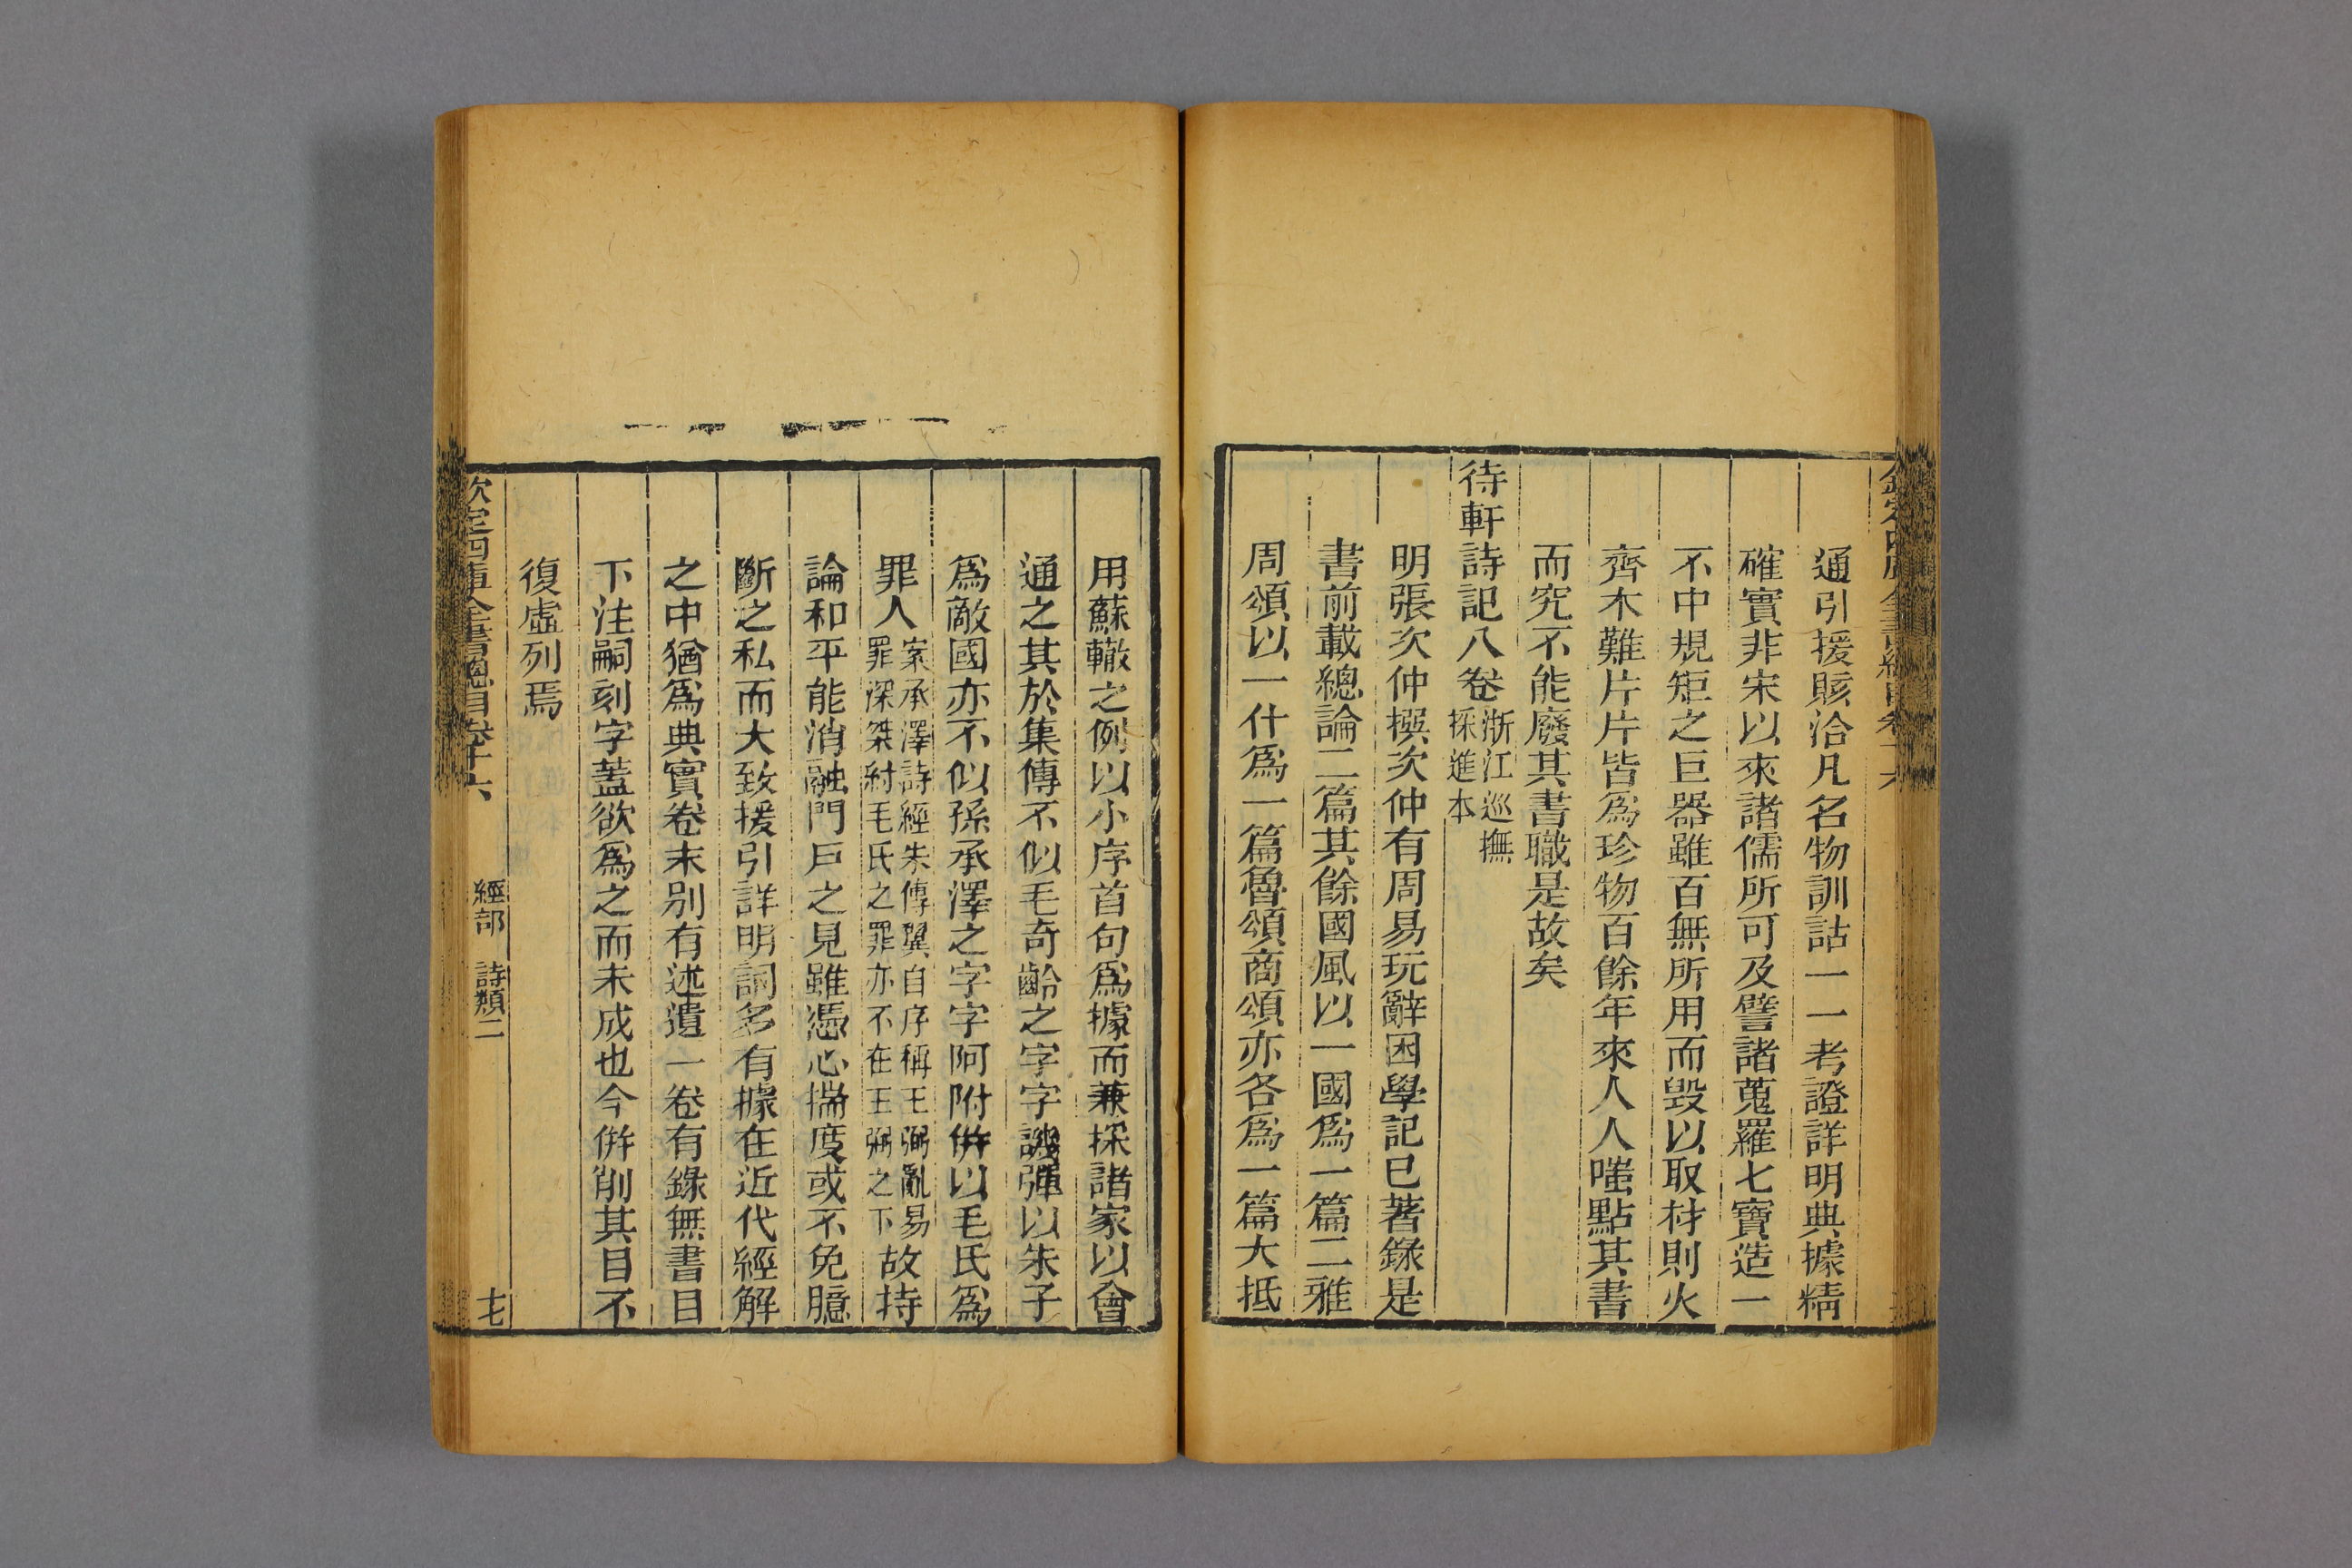 通引援賅洽凡名物訓詁一一考證詳明典據精
確實非宋以來諸儒所可及譬諸蒐羅七寶造一
不中規矩之巨器雖百無所用而毀以取材則火
齊木難片片皆爲珍物百餘年來人人嗤點其書
而究不能廢其書職是故矣
待軒詩記八卷
浙江巡撫
採進本
明張次仲撰次仲有周易玩辭困學記巳著錄是
書前載總論二篇其餘國風以一國爲一篇二雅
周頌以一什爲一篇魯頌商頌亦各爲一篇大抵
用蘇轍之例以小序首句爲據而兼採諸家以會
通之其於集傳不似毛奇齡之字字譏彈以朱子
爲敵國亦不似孫承澤之字字阿附併以毛氏爲
罪人
案承澤詩經朱傳翼自序稱王弼亂易
罪深桀紂毛氏之罪亦不在王弼之下
故持
論和平能消融門戶之見雖憑心揣度或不免臆
斷之私而大致援引詳明詞多有據在近代經解
之中猶爲典實卷末別有述遺一卷有錄無書目
下注嗣刻字蓋欲爲之而未成也今併削其目不
復虛列焉
欽定四庫全書總目卷十六
經部 詩類二
十七